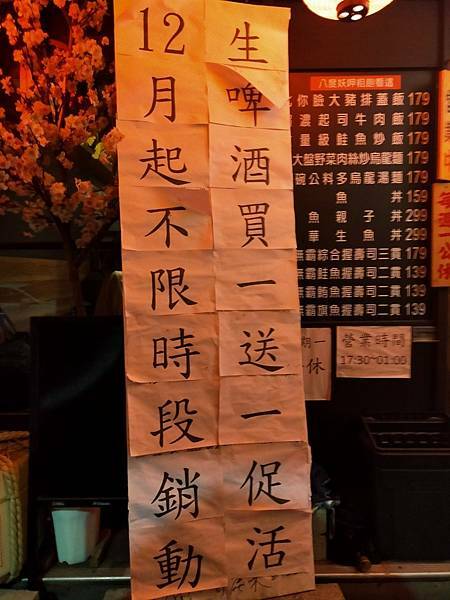 生啤酒買一送一促活
12月起不限時段銷動
你臉大豬排蓋飯 179
濃起司牛肉飯 179
量級鮭魚炒飯 179
大盤野菜肉絲炒烏龍麵 179
碗公料多烏龍湯麵 179
魚丼 159
魚親子丼 299
華生魚丼 299
無霸綜合握壽司三貫 179
無霸鮭魚握壽司二貫 139
無霸鮪魚握壽司二貫 139
無霸旗魚握壽司二貫 139
每週一公休
期一
休
營業時間
17:30~01:00